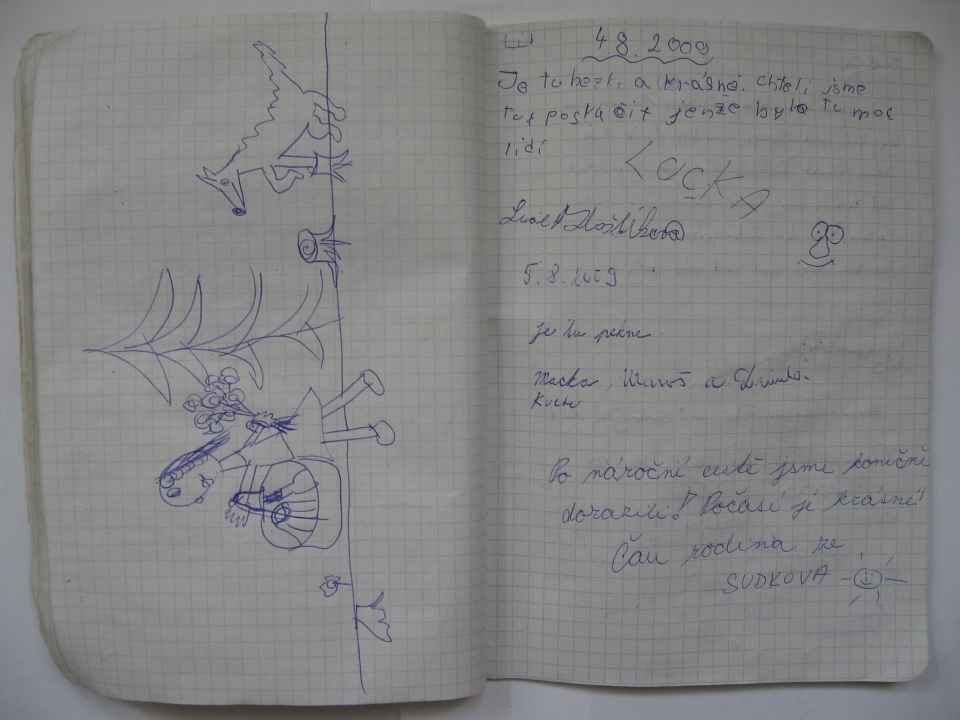 4 8. 2009
Je tu hezki a krásně. chteli jsme
tu poskačit jenže bylo tu moc
lidí
LUCKA
5.8.2009
je tu pekne
Macka a
Po náročné cestě jsme konečně
dorazili! Počasí je krásné!
Čau rodina ze
SUDKOVA